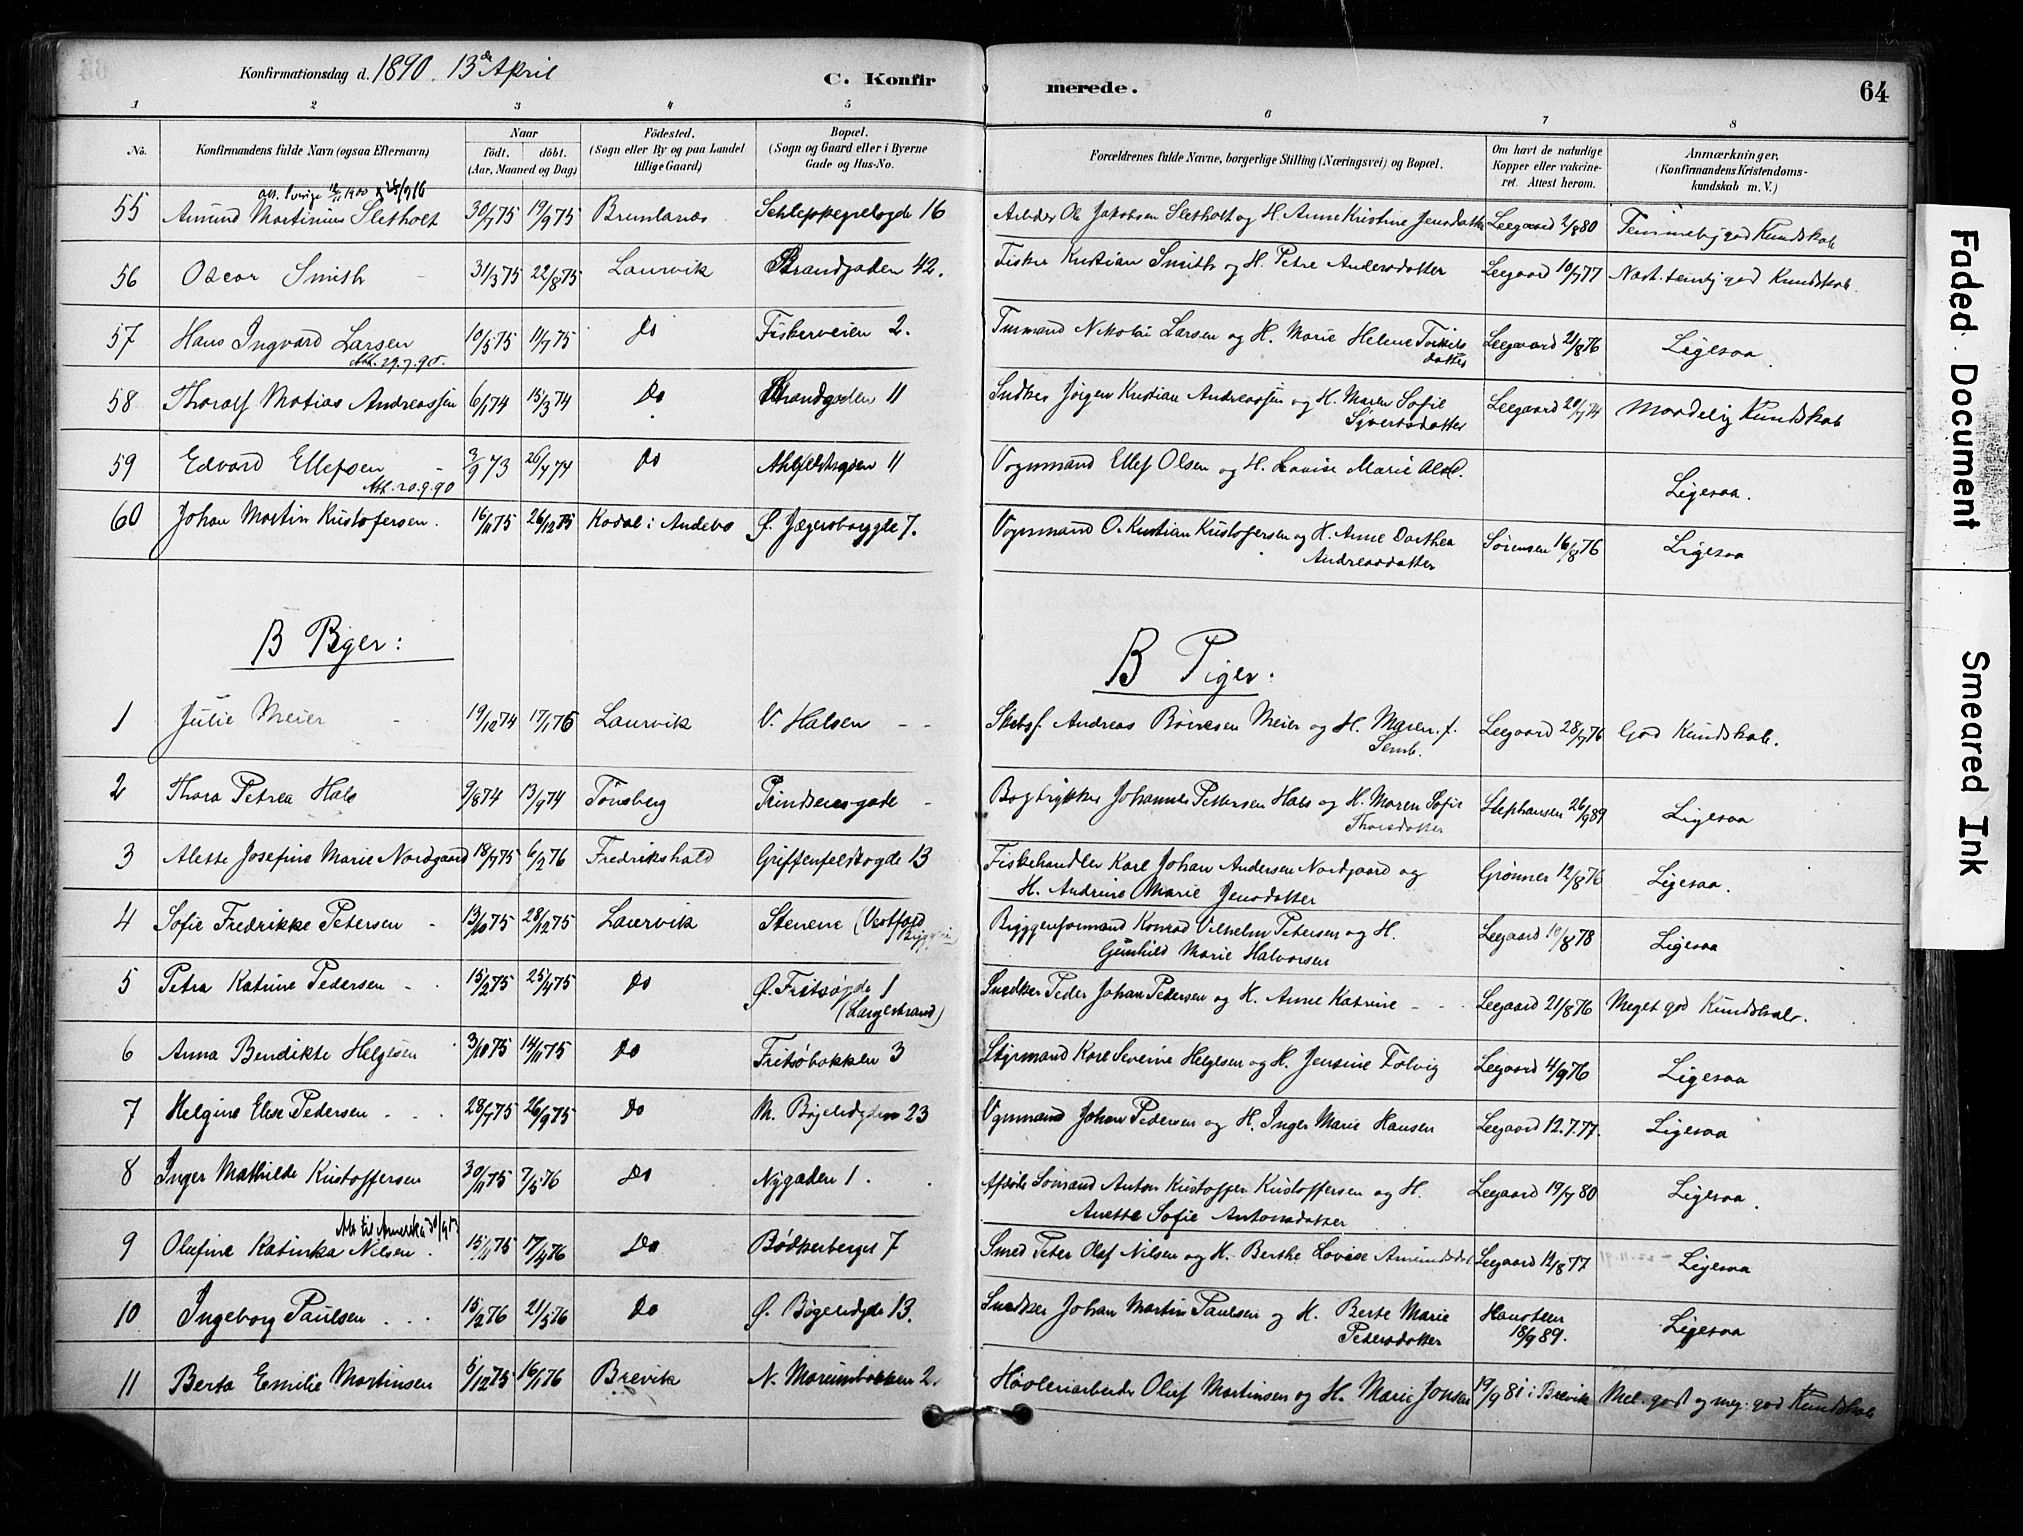 Konfirmationsdag d. 1890. 13de April
C. Konfirmerede.
64
1 2 3 4 5 6 7 8
No. Konfirmandens fulde Navn (ogsaa Efternavn) Naar födt. döbt. (Aar, Maaned og Dag) Födested. (Sogn eller By og paa Landet tillige Gaard) Bopæl. (Sogn og Gaard eller i Byerne Gade og Hus-No. Forældrenes fulde Navne, borgerlige Stilling (Næringsvei) og Bopæl. Om havt de naturlige Kopper eller vakcineret. Attest herom. Anmærkninger. (Konfirmandens Kristendomskundskab m. V.)
55 Amund Martinius Sletholt 30/7 75 19/9 75 Brunlanæs Schleppegrelsgde 16 Arbeider Ole Jakobsen Sletholt og H. Anne Kristine Jensdatter Leegaard 2/8 80 Temmelig god Kundskab
56 Oscar Smith 31/3 75 22/8 75 Laurvik Strandgaden 42. Fisker Kristian Smith og H. Petre Andersdatter Leegaard 10/7 77 Næst. temlig god Kundskab.
57 Hans Ingvard Larsen 10/5 75 11/7 75 Do Fiskerveien 2. Turmand Nikolai Larsen og H. Marie Helene Torkilsdatter Leegaard 21/8 76 Ligesaa.
Att. 29.7.90.
58 Thoralf Matias Andreassen 6/1 74 15/3 74 Do Strandgaden 11 Snedker Jørgen Kristian Andreassen og H. Maren Sofie Sivertsdatter Leegaard 20/7 74 Maadelig Kundskab
59 Edvard Ellefsen 3/9 73 26/4 74 Do Ahlefeldtsgden 11 Vognmand Ellef Olsen og H. Lovise Marie Ligesaa.
Att. 20.9.90
60 Johan Martin Kristofersen. 16/11 75 26/12 75 Kodal i Andebo Ø. Jegersborggde 7. Vognmand O. Kristian Kristofersen og H. Anne Dorthea Andreasdatter Sørensen 16/8 76 Ligesaa
B Piger:
B Piger:
1 Julie Meier 19/12 74 17/1 76 Laurvik V. Halsen Skibsf. Andreas Børresen Meier og H. Maren f. Semb. Leegaard 28/7 76 God Kundskab.
2 Thora Petrea Hals 9/8 74 13/9 74 Tönsberg Prindsensgade Bogtrykker Johannes Pettersen Hals og H. Maren Sofie Thorsdatter Stephansen 26/9 89 Ligesaa
3 Alette Josefine Marie Nordgaard 18/7 75 6/2 76 Fredrikshald Griffenfeldtsgde 13 Fiskehandler Karl Johan Andersen Nordgaard og H. Andrine Marie Jensdatter Grønner 12/8 76 Ligesaa.
4 Sofie Fredrikke Petersen 13/10 75 28/12 75 Laurvik Stenene (Vestfold Bryggeri Bryggeriformand Konrad Vilhelm Petersen og H. Gunhild Marie Halvorsen Leegaard 19/8 78 Ligesaa
5 Petra Katrine Pedersen 15/2 75 25/4 75 Do Ø. Fritsøgde 1 (Langestrand) Snedker Peder Johan Pedersen og H. Anne Katrine Leegaard 21/8 76 Meget god Kundskab.
6 Anna Bendikte Helgesen 3/10 75 14/11 75 Do Fritsöbakken 3 Styrmand Karl Severin Helgesen og H. Jensine Folvig Leegaard 4/9 76 Ligesaa
7 Helgine Elise Pedersen 28/7 75 26/9 75 Do M. Bøgelidgden 23 Vognmand Johan Pedersen og H. Inger Marie Hansen Leegaard 12.7.77. Ligesaa
8 Inger Mathilde Kristoffersen 30/11 75 7/5 76 Do Nygaden 1. Afdöde Sömand Anton Kristoffer Kristoffersen og H. Anette Sofie Antonsdatter Leegaard 19/7 80 Ligesaa.
9 Olufine Katinka Nilsen. 15/11 75 17/4 76 Do Bødkerberget 7 Smed Peter Olaf Nilsen og H. Berthe Lovise Amundsdat Leegaard 12/8 77 Ligesaa
10 Ingeborg Paulsen 15/2 76 21/5 76 Do Ø. Bøgelidgde 13. Snedker Johan Martin Paulsen og H. Berte Marie Pedersdatter Hansteen 18/9 89. Ligesaa
11 Berta Emilie Martinsen 5/12 75 16/1 76 Brevik N. Morumbakken 2. Høvleriarbeider Oluf Martinsen og H. Marie Jonsen 19/9 81 i Brevik Mel. godt og meg. god Kundskab
Faded Document
Smeared Ink